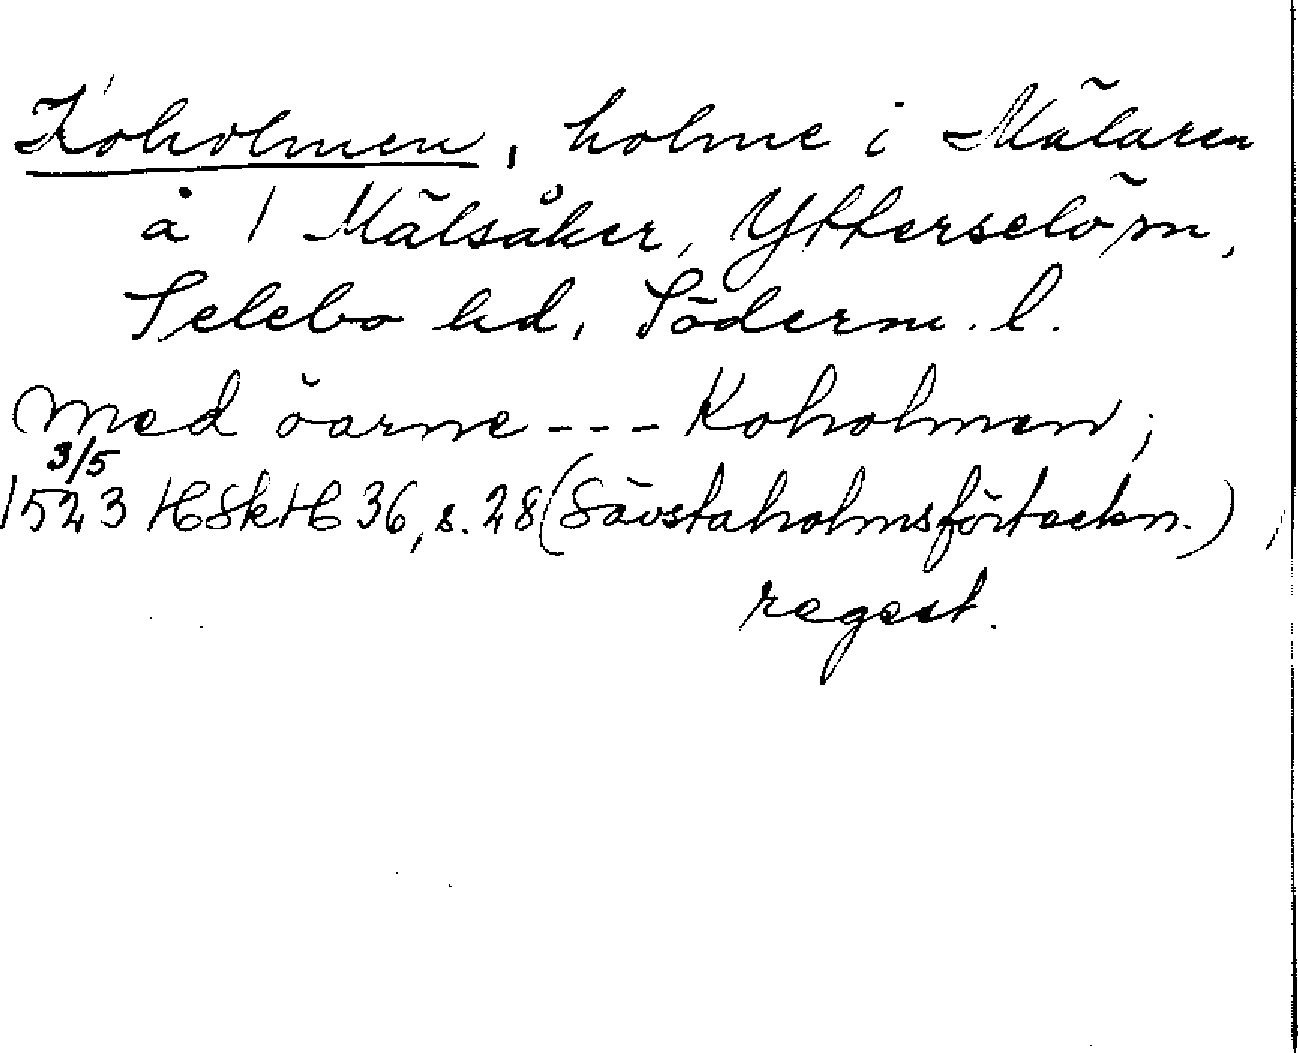 Koholmen, holme i Mälaren
å 1 Mälsåker, Ytterselö sn,
Selebo hd, Söderm. l.
med öarne --- Koholmen;
3/5
1523 HSkH 36, s. 28 (Sävstaholmsförteckn.),
regest.